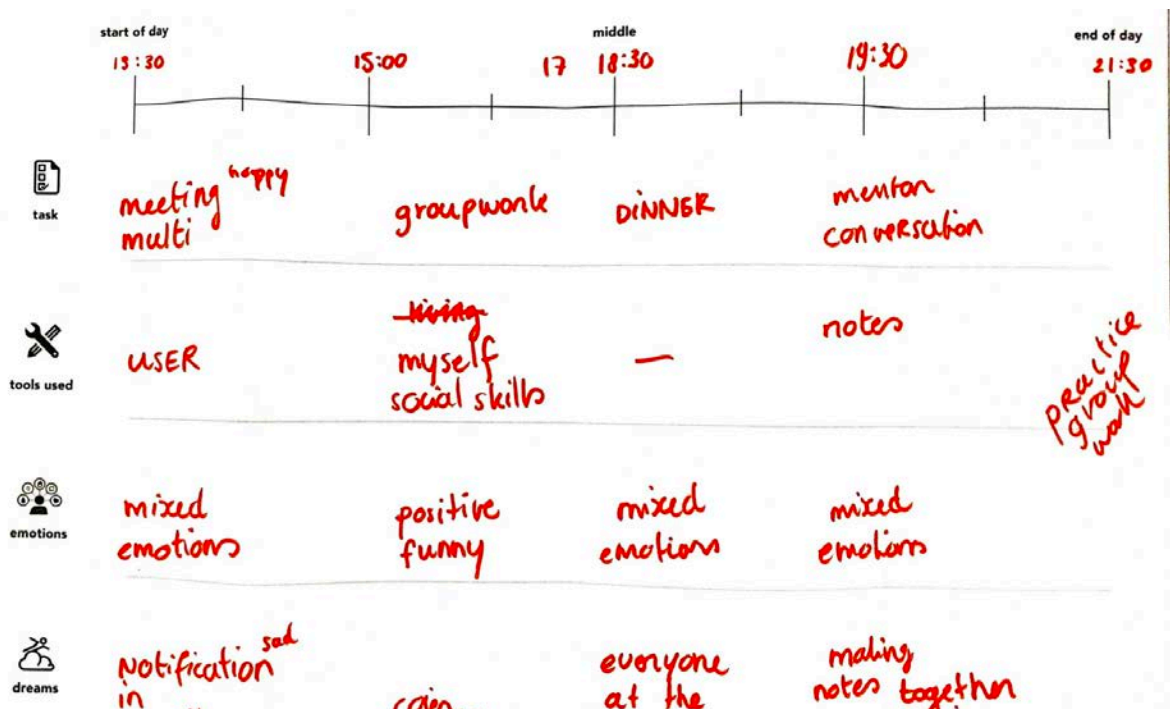 start of day
middle
end of day
13:30
15:00
17
18:30
19:30
21:30
task
meeting happy
multi
groupwork
DINNER
mentor
conversation
tools used
USER
myself
social skills
—
notes
practice
group
work
emotions
mixed
emotions
positive
funny
mixed
emotions
mixed
emotions
dreams
Notification sad
in
everyone
at the
making
notes together